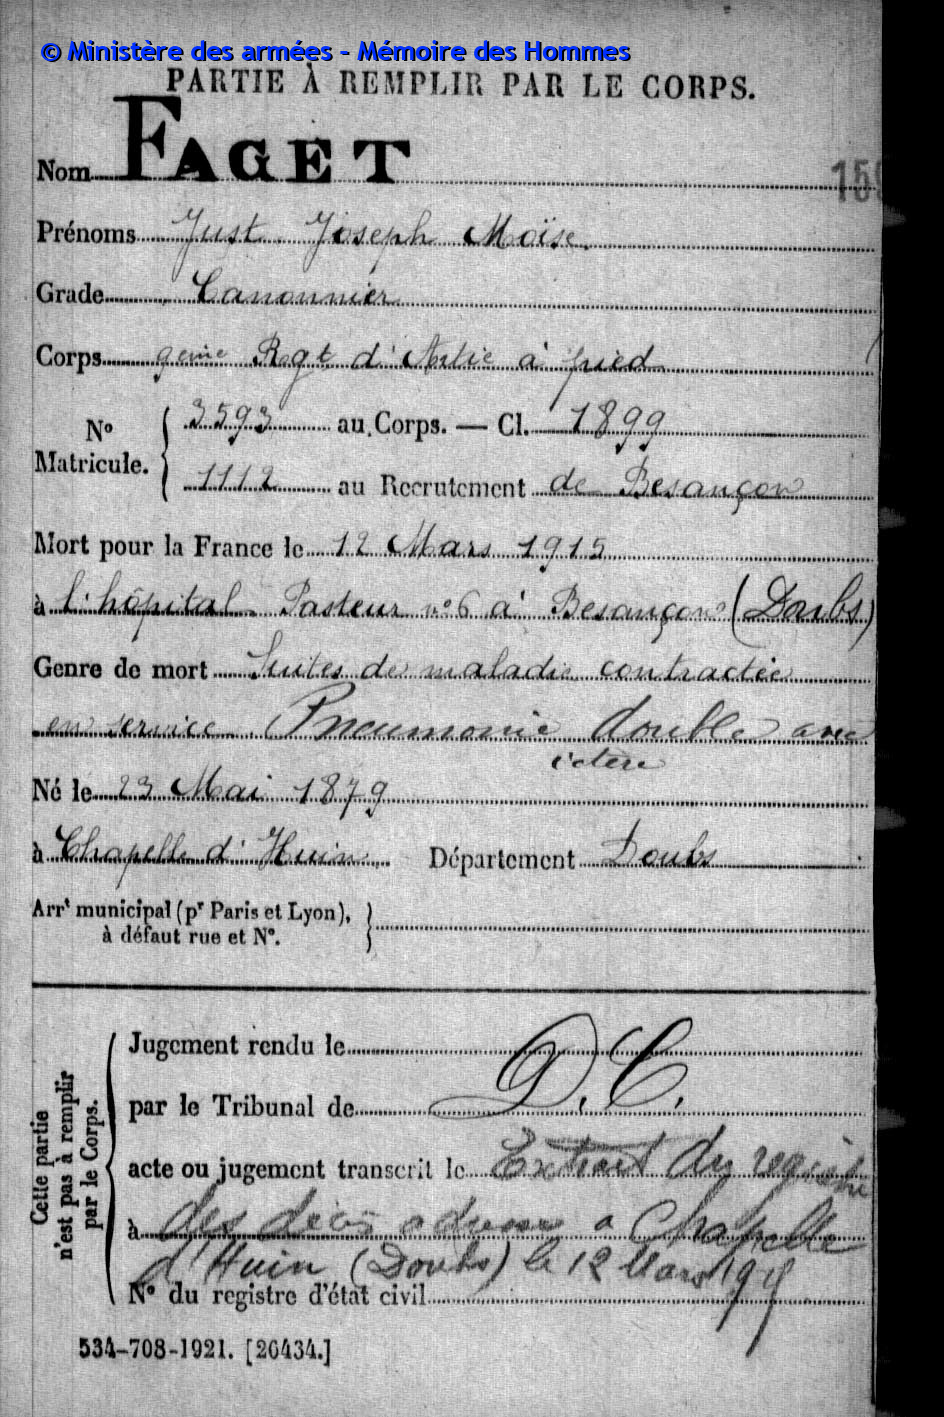 © Ministère des armées - Mémoire des Hommes
PARTIE À REMPLIR PAR LE CORPS.
Nom FAGET
159
Prénoms Just Joseph Moïse.
Grade Canonnier
Corps 9eme Rgt d'Artie à pied
N° Matricule. { 3593 au Corps. — Cl. 1899
1112 au Recrutement de Besançon
Mort pour la France le 12 Mars 1915
à l'hôpital Pasteur n°6 à Besançon (Doubs)
Genre de mort Suites de maladie contractée
en service. Pneumonie double avec
ictère
Né le 23 Mai 1879
à Chapelle d'Huin Département Doubs
Arrt municipal (pr Paris et Lyon), à défaut rue et N°. }
Cette partie n'est pas à remplir par le Corps.
Jugement rendu le
par le Tribunal de D.C.
acte ou jugement transcrit le Extrait du registre
à des décès adressé a Chapelle
d'Huin (Doubs) le 12 Mars 1915
N° du registre d'état civil
534-708-1921. [26434.]